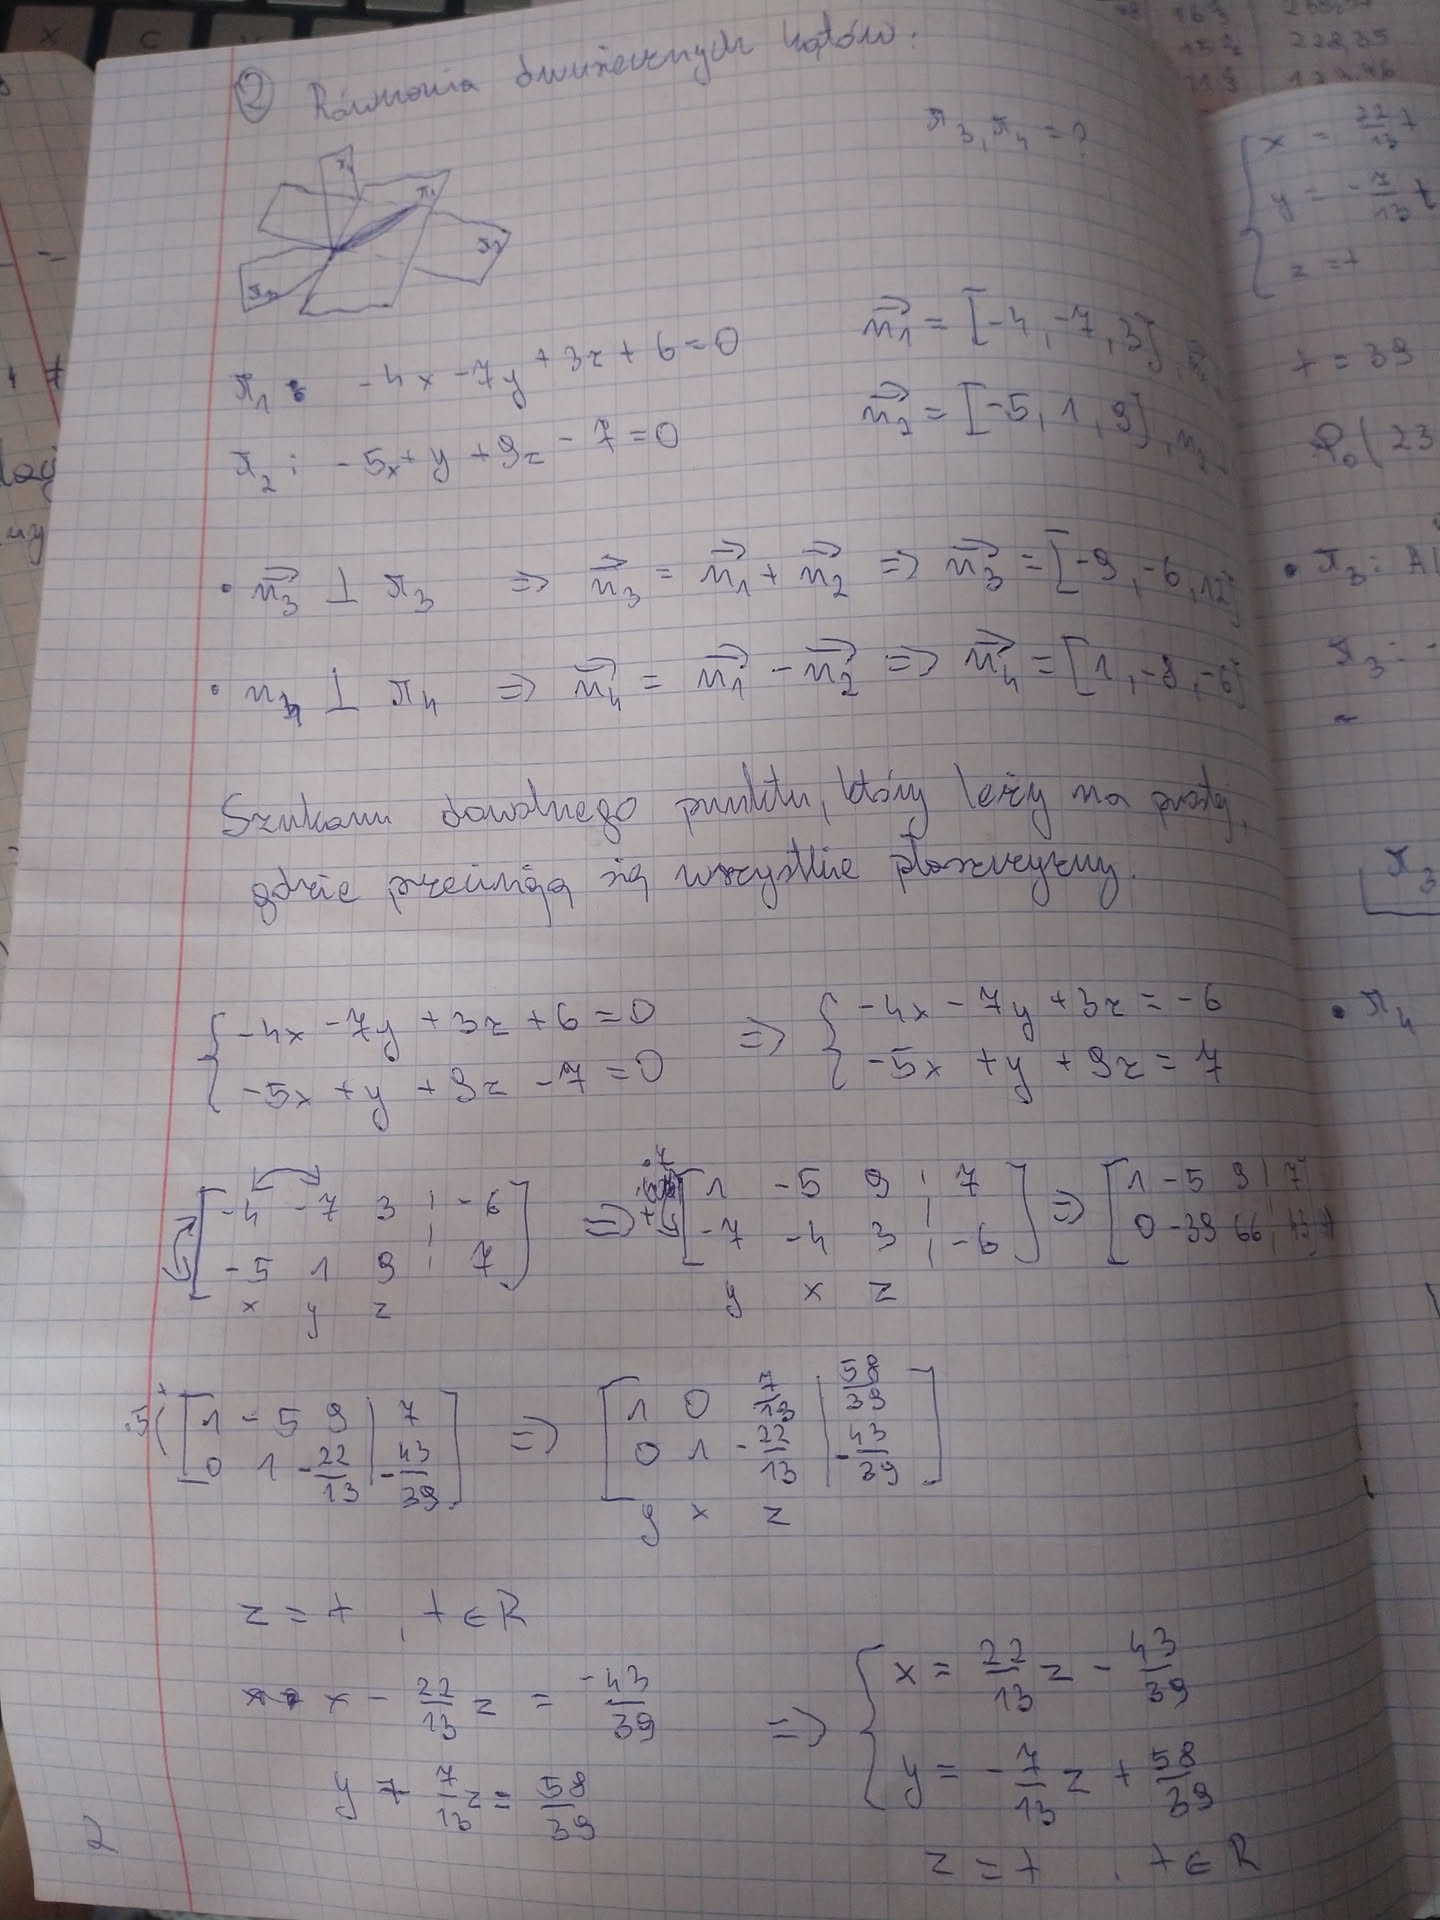 ② Równania dwusiecznych kątów:
π3, π4 = ?
π1
π2
π1 : -4x -7y +3z + 6 = 0
n1 = [-4, -7, 3]
π2 : -5x + y + 9z - 7 = 0
n2 = [-5, 1, 9]
• n3 ⊥ π3 => n3 = n1 + n2 => n3 = [-9, -6, 12]
• n4 ⊥ π4 => n4 = n1 - n2 => n4 = [1, -8, -6]
Szukam dowolnego punktu, który leży na prostej,
gdzie przecinają się wszystkie płaszczyzny.
{ -4x -7y +3z +6 = 0 => { -4x -7y +3z = -6
{ -5x + y + 9z - 7 = 0 { -5x + y + 9z = 7
[ -4 -7 3 | -6 ] => ·7 [ 1 -5 9 | 7 ] => [ 1 -5 9 | 7 ]
[ -5 1 9 | 7 ] [ -7 -4 3 | -6 ] [ 0 -39 66 | 43 ]
x y z y x z
·5 [ 1 -5 9 | 7 ] => [ 1 0 7/13 | 58/39 ]
[ 0 1 -22/13 | -43/39 ] [ 0 1 -22/13 | -43/39 ]
y x z
z = t , t ∈ R
x - 22/13 z = -43/39 => { x = 22/13 z - 43/39
y + 7/13 z = 58/39 { y = -7/13 z + 58/39
z = t , t ∈ R
2
{ x = 22/13 t
{ y = -7/13 t
{ z = t
t = 39
P0 ( 23
• π3 : A(
π3 : -
π3
• π4